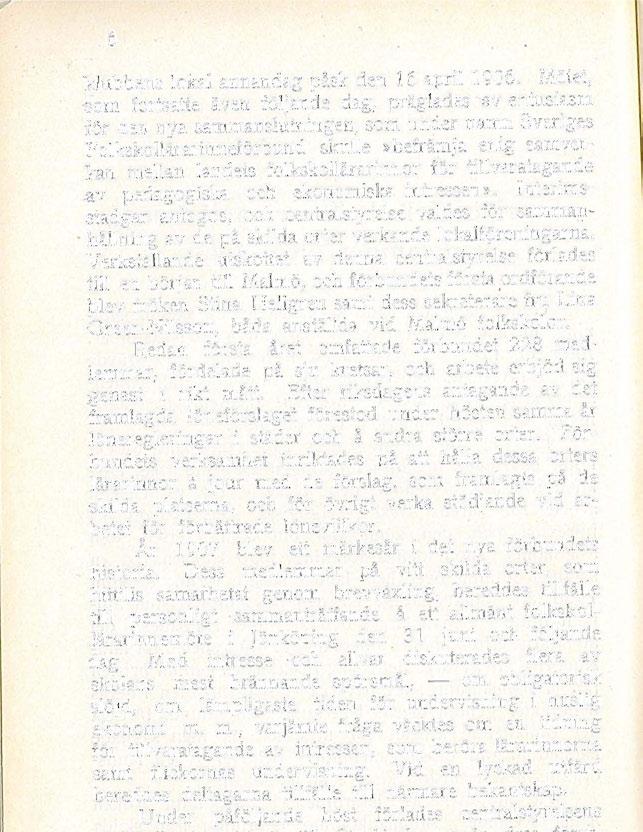 6
klubbens lokal annandag påsk den 16 april 1906. Mötet,
som fortsatte även följande dag, präglades av entusiasm
för den nya sammanslutningen, som under namn Sveriges
Folkskollärarinneförbund skulle »befrämja enig samver-
kan mellan landets folkskollärarinnor för tillvaratagande
av pedagogiska och ekonomiska intressen». Interims-
stadgar antogos, och centralstyrelse valdes för samman-
hållning av de på skilda orter verkande lokalföreningarna.
Verkställande utskottet av denna centralstyrelse förlades
till en början till Malmö, och förbundets första ordförande
blev fröken Stina Hallgren samt dess sekreterare fru
Green-Nilsson, båda anställda vid Malmö folkskolor.
Redan första året omfattade förbundet 228 med-
lemmar, fördelade på sju kretsar, och arbete erbjöd sig
genast i rikt mått. Efter riksdagens antagande av det
framlagda löneförslaget förestod under hösten samma år
löneregleringar i städer och å andra större orter. För-
bundets verksamhet inriktades på att hålla dessa orters
lärarinnor à jour med de förslag, som framlagts på de
skilda platserna, och för övrigt verka stödjande vid ar-
betet för förbättrade lönevillkor.
År 1907 blev ett märkesår i det nya förbundets
historia. Dess medlemmar på vitt skilda orter, som
hittills samarbetat genom brevväxling, bereddes tillfälle
till personligt sammanträffande å ett allmänt folkskol-
lärarinnemöte i Jönköping den 31 juni och följande
dag. Med intresse och allvar diskuterades flera av
skolans mest brännande spörsmål, — om obligatorisk
slöjd, om lämpligaste tiden för undervisning i huslig
ekonomi m. m., varjämte fråga väcktes om en tidning
för tillvaratagande av intressen, som beröra lärarinnorna
samt flickornas undervisning. Vid en lyckad utfärd
bereddes deltagarna tillfälle till närmare bekantskap.
Under påföljande höst förlades centralstyrelsens